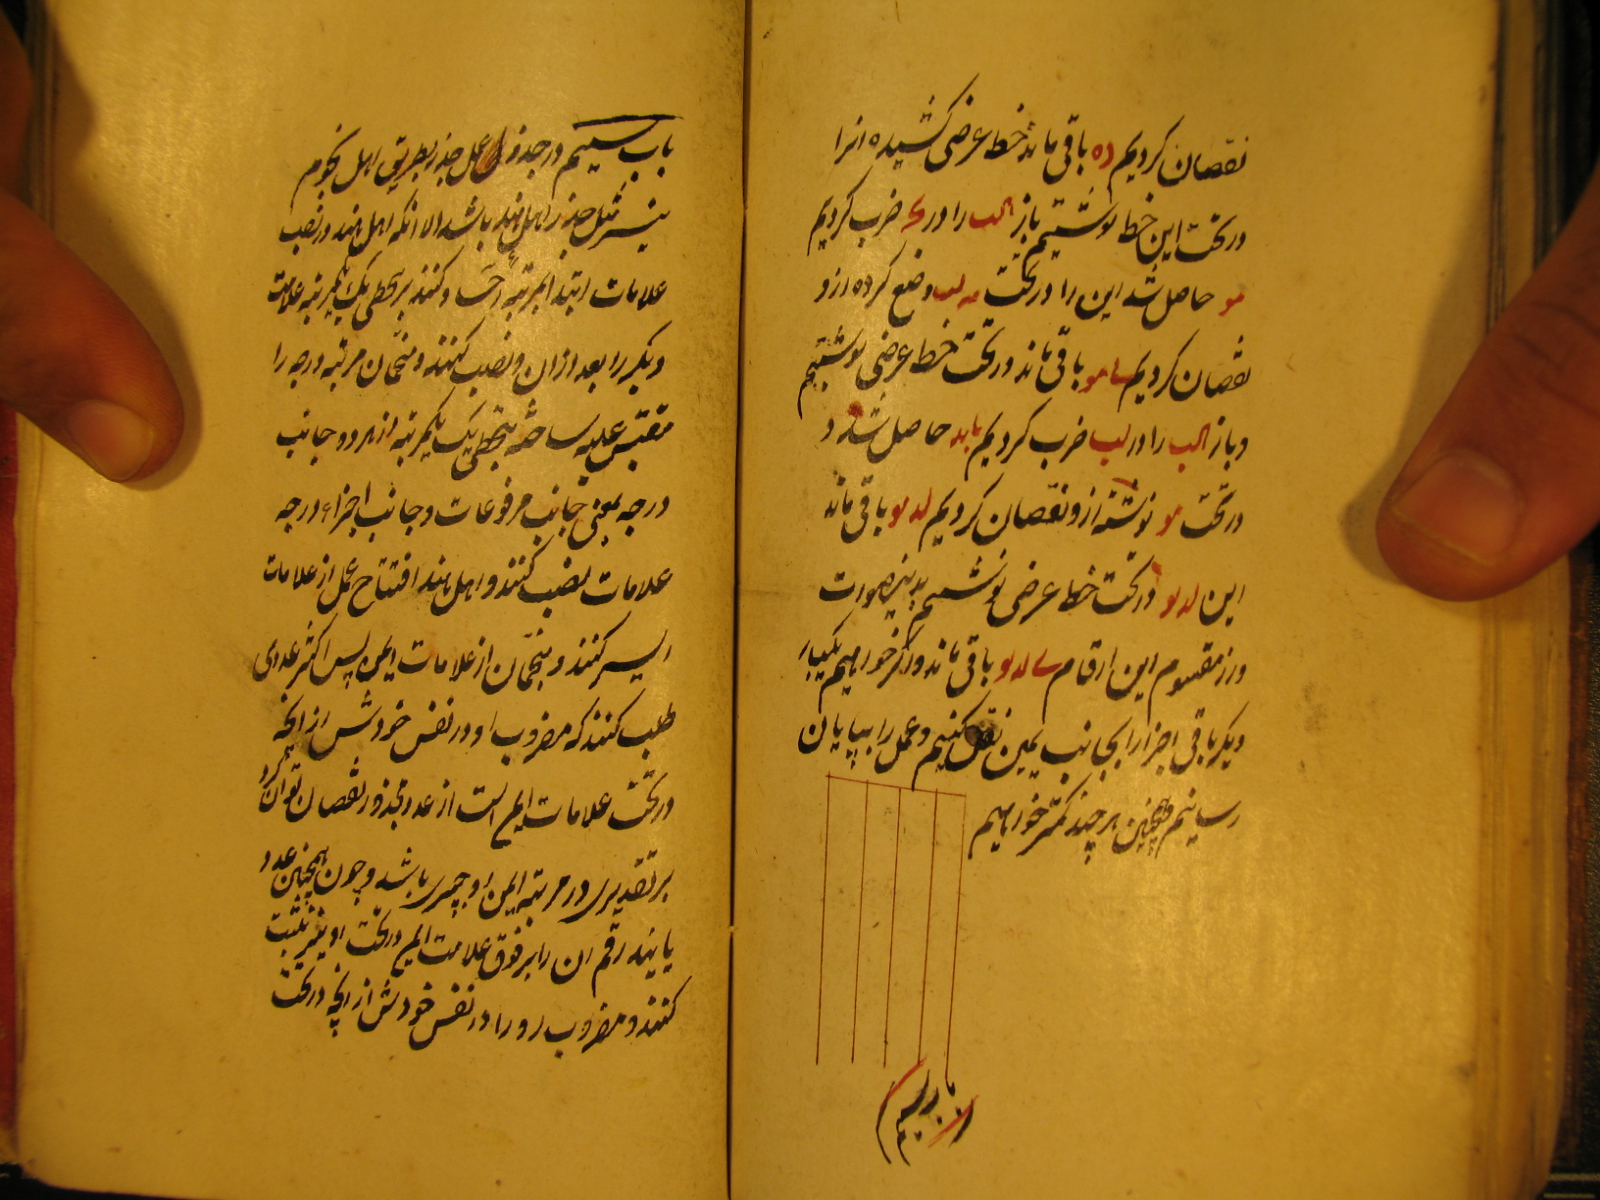 نقصان کردیم ده باقی ماند خط عرضی کشیده انرا
در تحت این خط نوشتیم باز الب را در ضرب کردیم
مو حاصل شد این را در تحت وضع کرده ازو
نقصان کردیم مو باقی ماند در تحت خط عرضی نوشتیم
و باز الب را در لب ضرب کردیم حاصل شد
در تحت مو نوشته ازو نقصان کردیم باقی ماند
این در تحت خط عرضی نوشتیم بدینصورت
و از مقسوم این ارقام باقی ماند و اگر خواهیم یکبار
دیگر باقی اجزا را بجانب یمین نقل کنیم و عمل را بپایان
رسانیم همچنین هر چند کمتر خواهیم
باب سیم در جذر عمل جذر بطریق اهل نجوم
نیز مثل جذر اهل هند باشد الا انکه اهل هند در نصب
علامات ابتدا بمرتبه احاد کنند و بتخطی یک یک مرتبه علامت
دیگر را بعد از ان نصب کنند و منجمان مرتبه درجه را
بتخطی یک یک مرتبه از هر دو جانب
درجه یعنی جانب مرفوعات و جانب اجزاء درجه
علامات نصب کنند و اهل هند افتتاح عمل از علامات
ایسر کنند و منجمان از علامات ایمن پس اکثر عددی
طلب کنند که مضروب او در نفس خودش از انچه
در تحت علامات ایمن است از عدد مجذور نقصان توان کرد
بر تقدیری در مرتبه ایمن او چیزی باشد و چون همچنین عدد
یابند رقم ان را بر فوق علامت ایمن در تحت او نیز ثبت
کنند و مضروب او را در نفس خودش از انچه در تحت